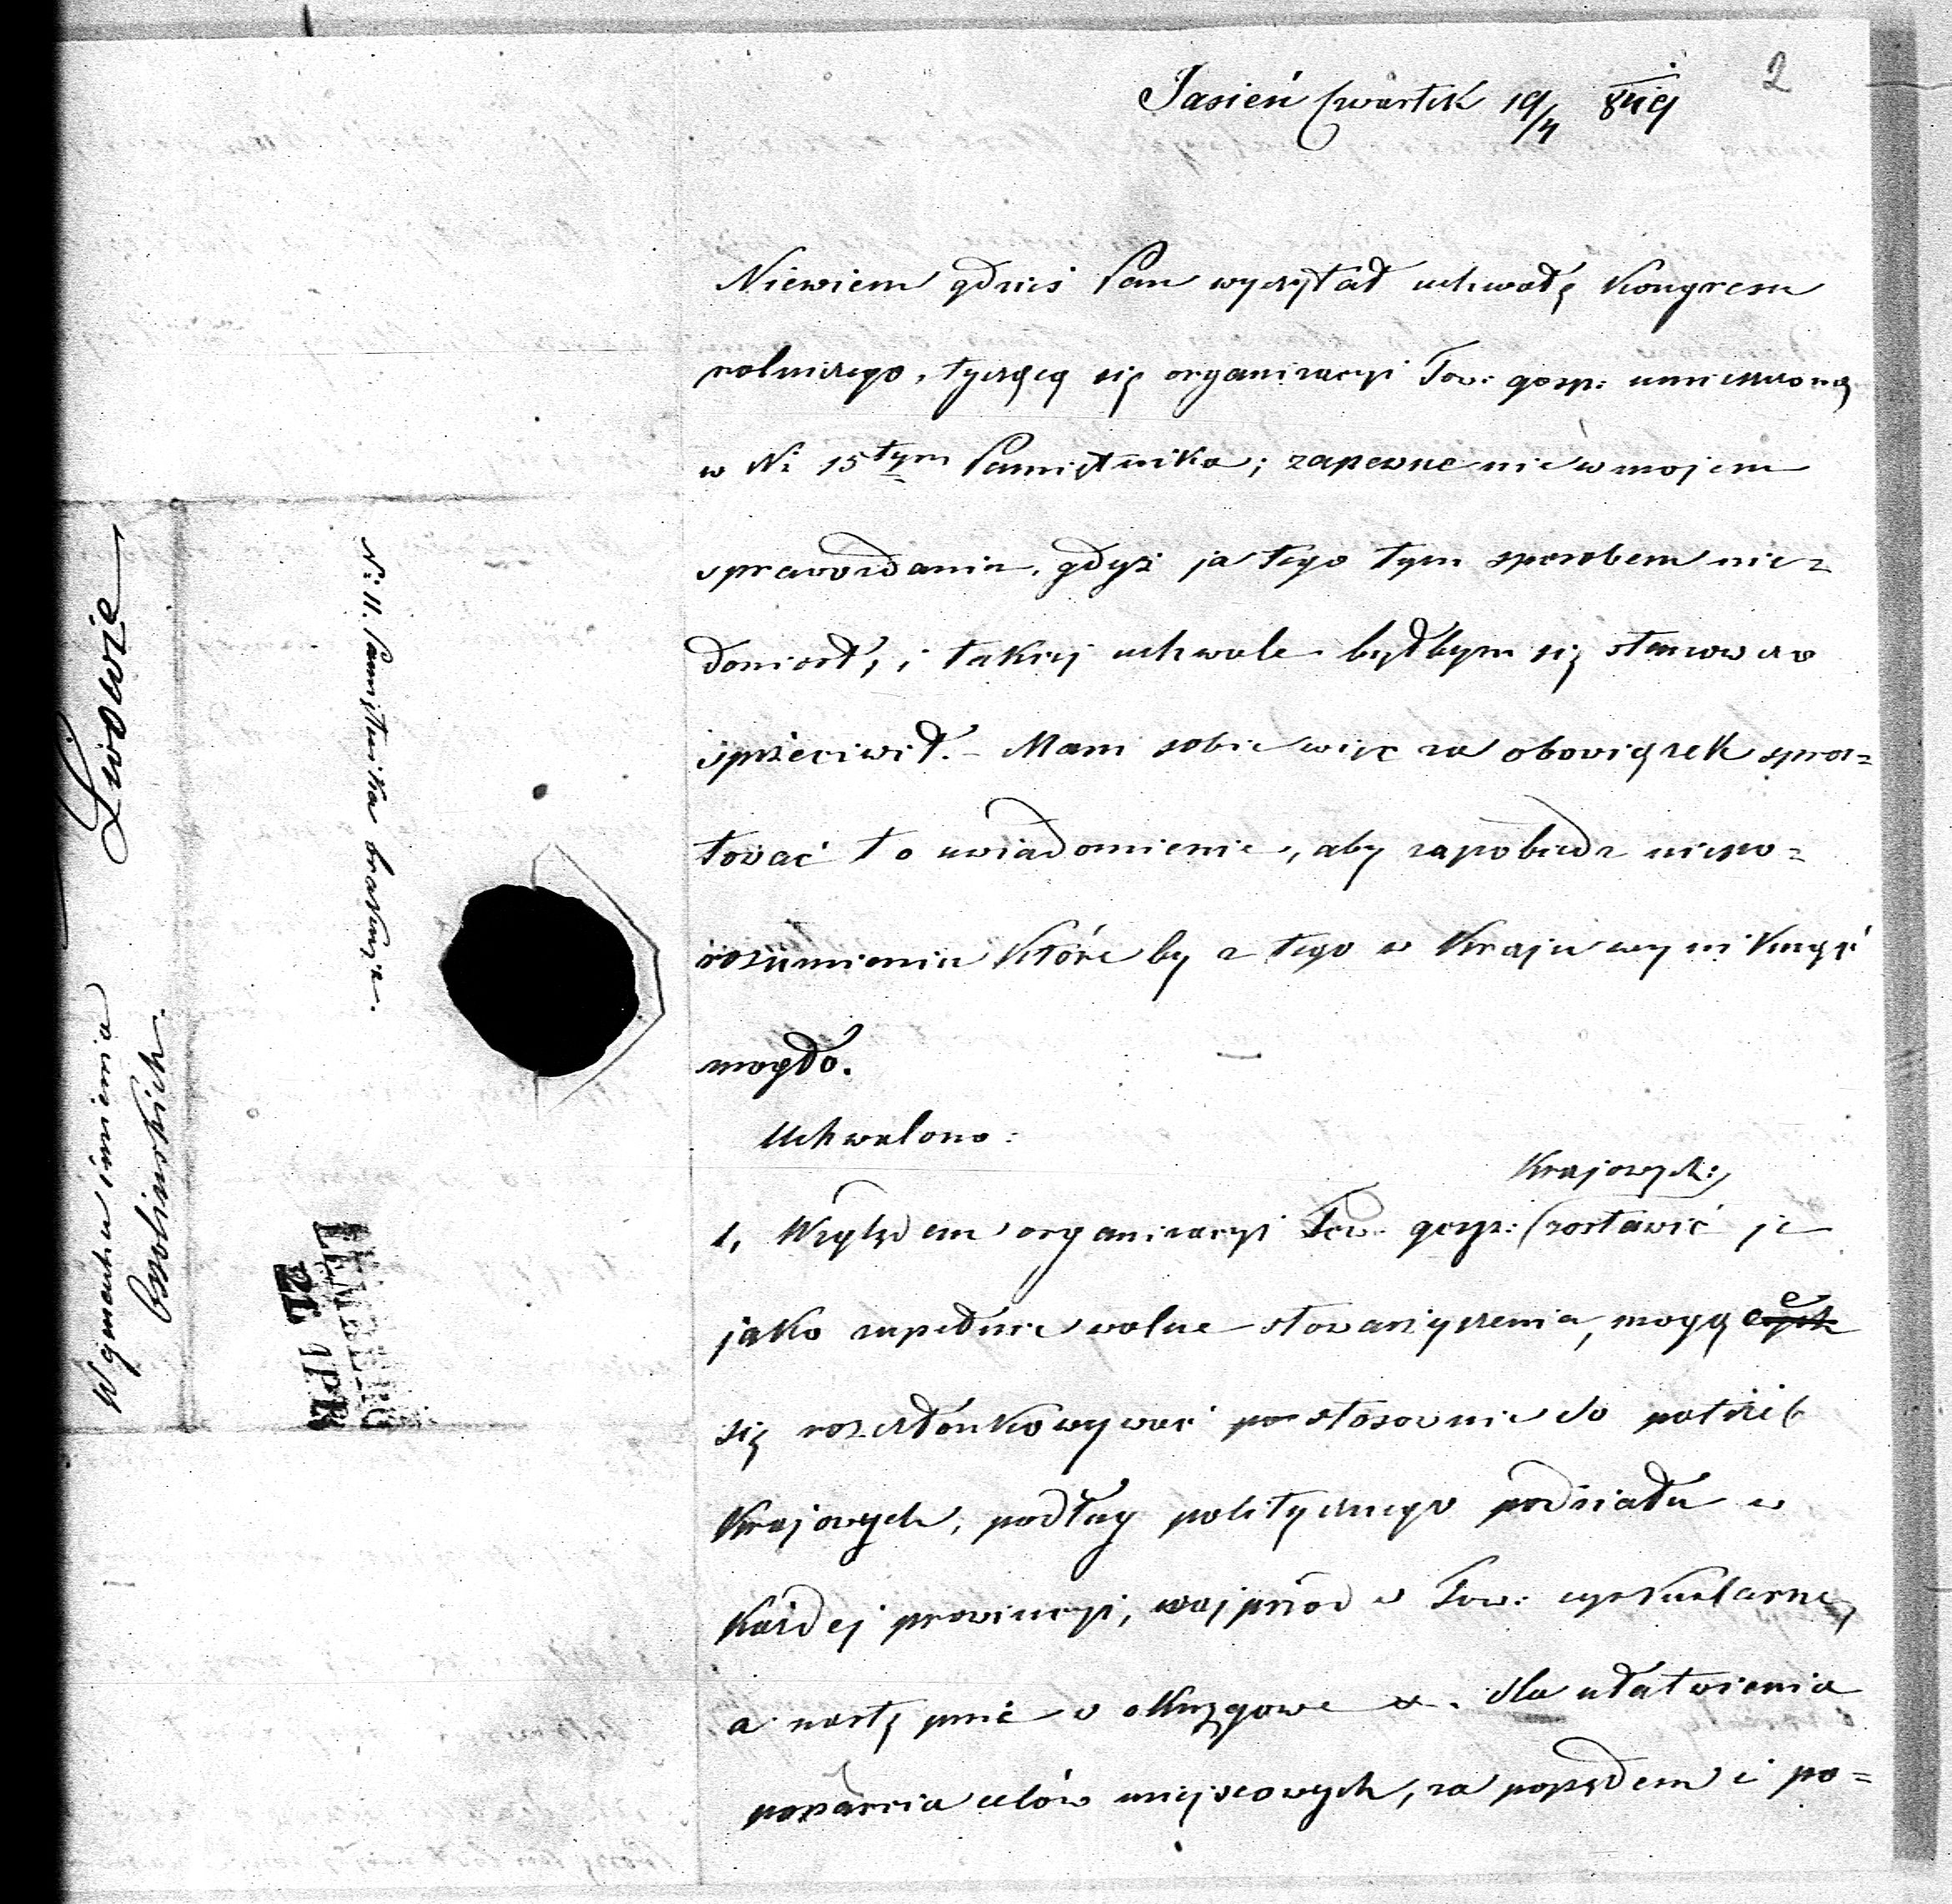 2
Jasień Czwartek 19/4 849
Niewiem gdzieś Pan wyczytał uchwałę Kongresu
rolniczego, tyczącą się organizacyi Tow: gosp: umieszczoną
w Nr 15tym Pamiętnika; zapewne nie w mojem
sprawozdaniu, gdyż ja tego tym sposobem nie=
doniosł, i takiej uchwale byłbym się stanowczo
sprzeciwił. – Mam sobie więc za obowiązek spros=
tować to uwiadomienie, aby zapobiedz niepo=
rozumieniu które by z tego w Kraju wyniknąć
mogło.
Uchwalono:
Krajowych:)
1, Względem organizacyi Tow: gosp: (zostawić je
jako zupełnie wolne stowarzyszenia, mogące
się rozczłonkowywać postosownie do potrzeb
Krajowych, podług politycznego podziału w
każdej prowincyi, najprzód w Tow: cyrkularne,
a następnie w okręgowe dla ułatwienia
poparcia celów miejscowych, za popędem i po=
N: 11. Pamiętnika brakuje.
Lwowie
W gmachu imienia
Ossolinskich.
LEMBERG
21. APR